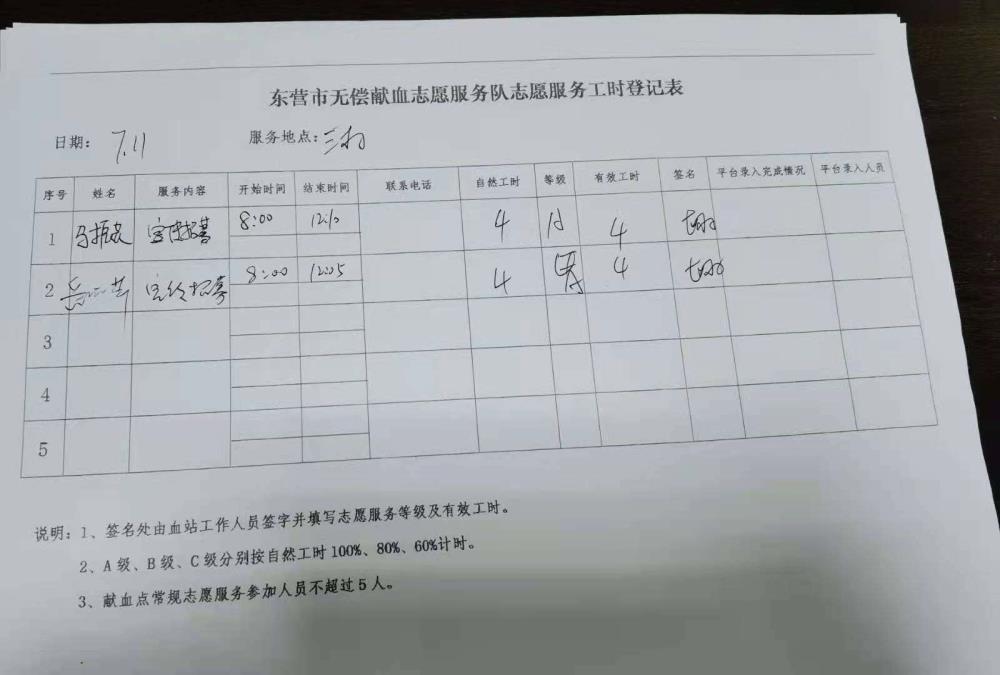 东营市无偿献血志愿服务队志愿服务工时登记表
日期： 7.11 服务地点：三和
序号 姓名 服务内容 开始时间 结束时间 联系电话 自然工时 等级 有效工时 签名 平台录入完成情况 平台录入人员
1 宣传招募 8:00 12:10 4 A 4
2 宣传招募 8:00 12:05 4 A 4
3
4
5
说明：1、签名处由血站工作人员签字并填写志愿服务等级及有效工时。
2、A 级、B 级、C 级分别按自然工时 100%、80%、60%计时。
3、献血点常规志愿服务参加人员不超过 5 人。